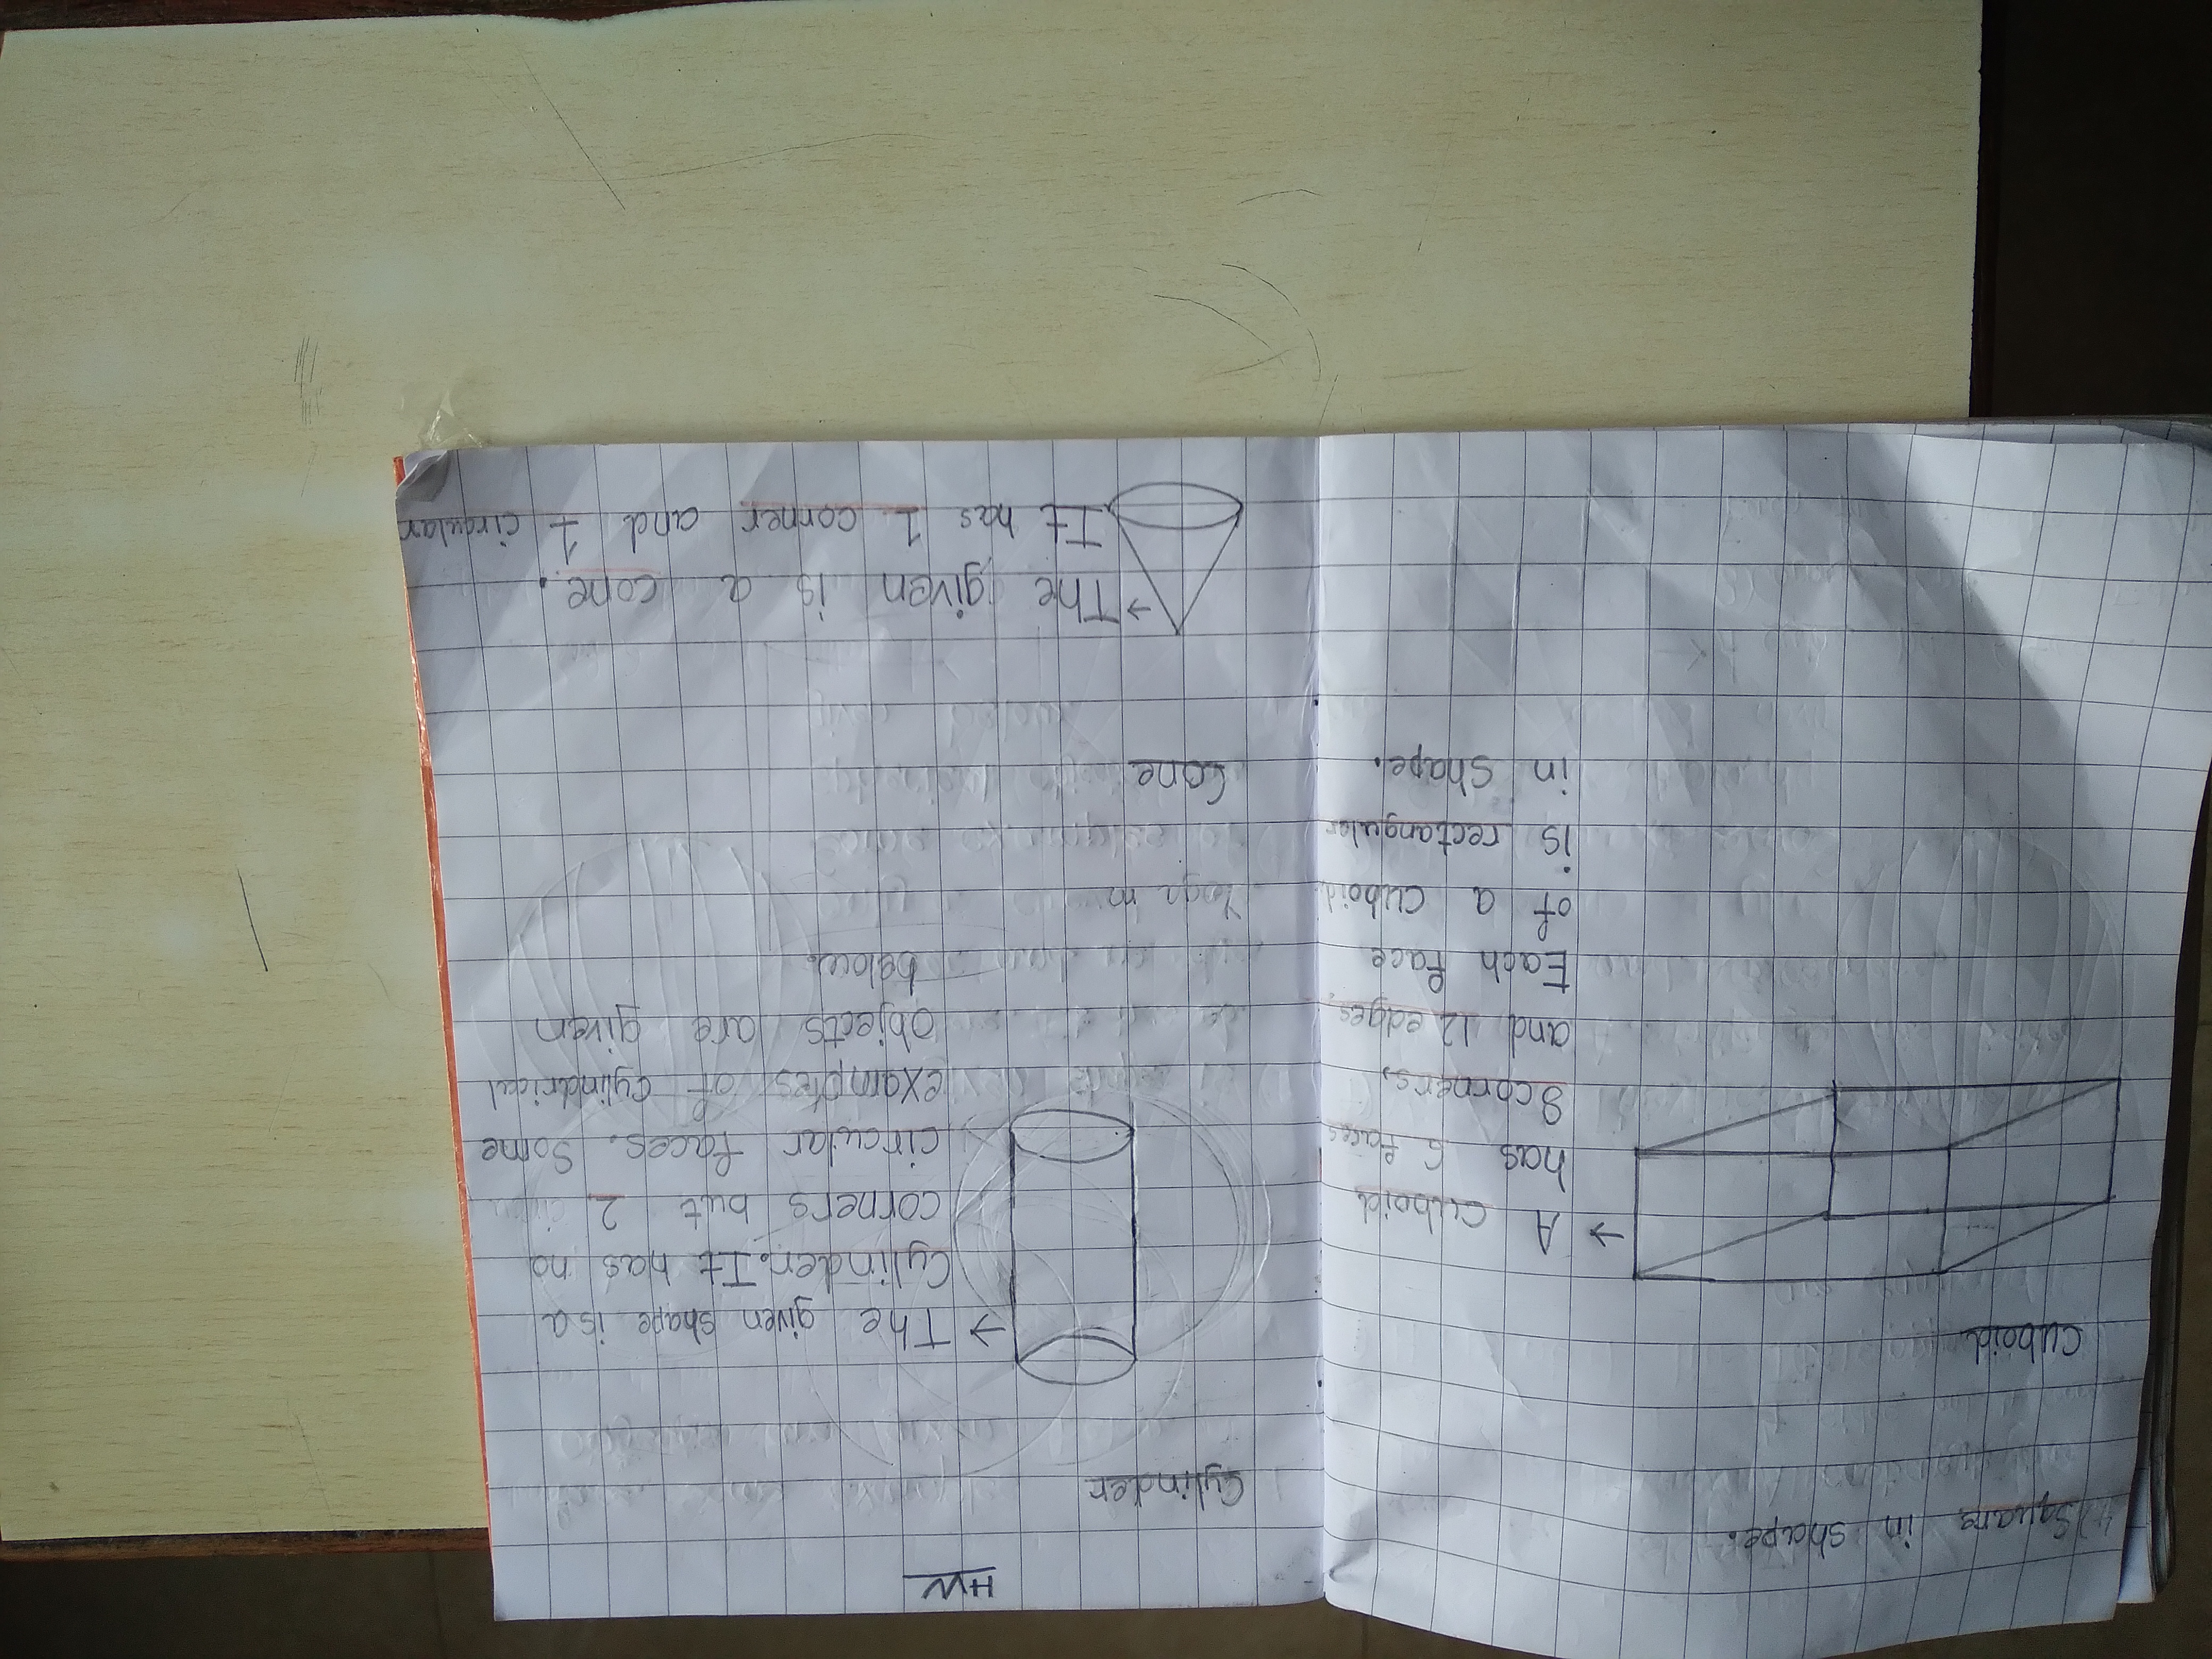 Square in shape.
Cuboid
→ A cuboid
has 6 faces
8 corners,
and 12 edges.
Each face
of a cuboid
is rectangular
in shape.
HW
Cylinder
→ The given shape is a
Cylinder. It has no
corners but 2
circular faces. Some
examples of cylindrical
objects are given
below.
Cone
→ The given is a cone.
It has 1 corner and 1 circular